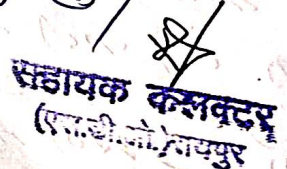 सहायक कलक्टर
(एस.डी.ओ.) जयपुर